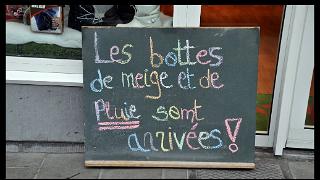 Les bottes
de neige et de
Pluie sont
arrivées !